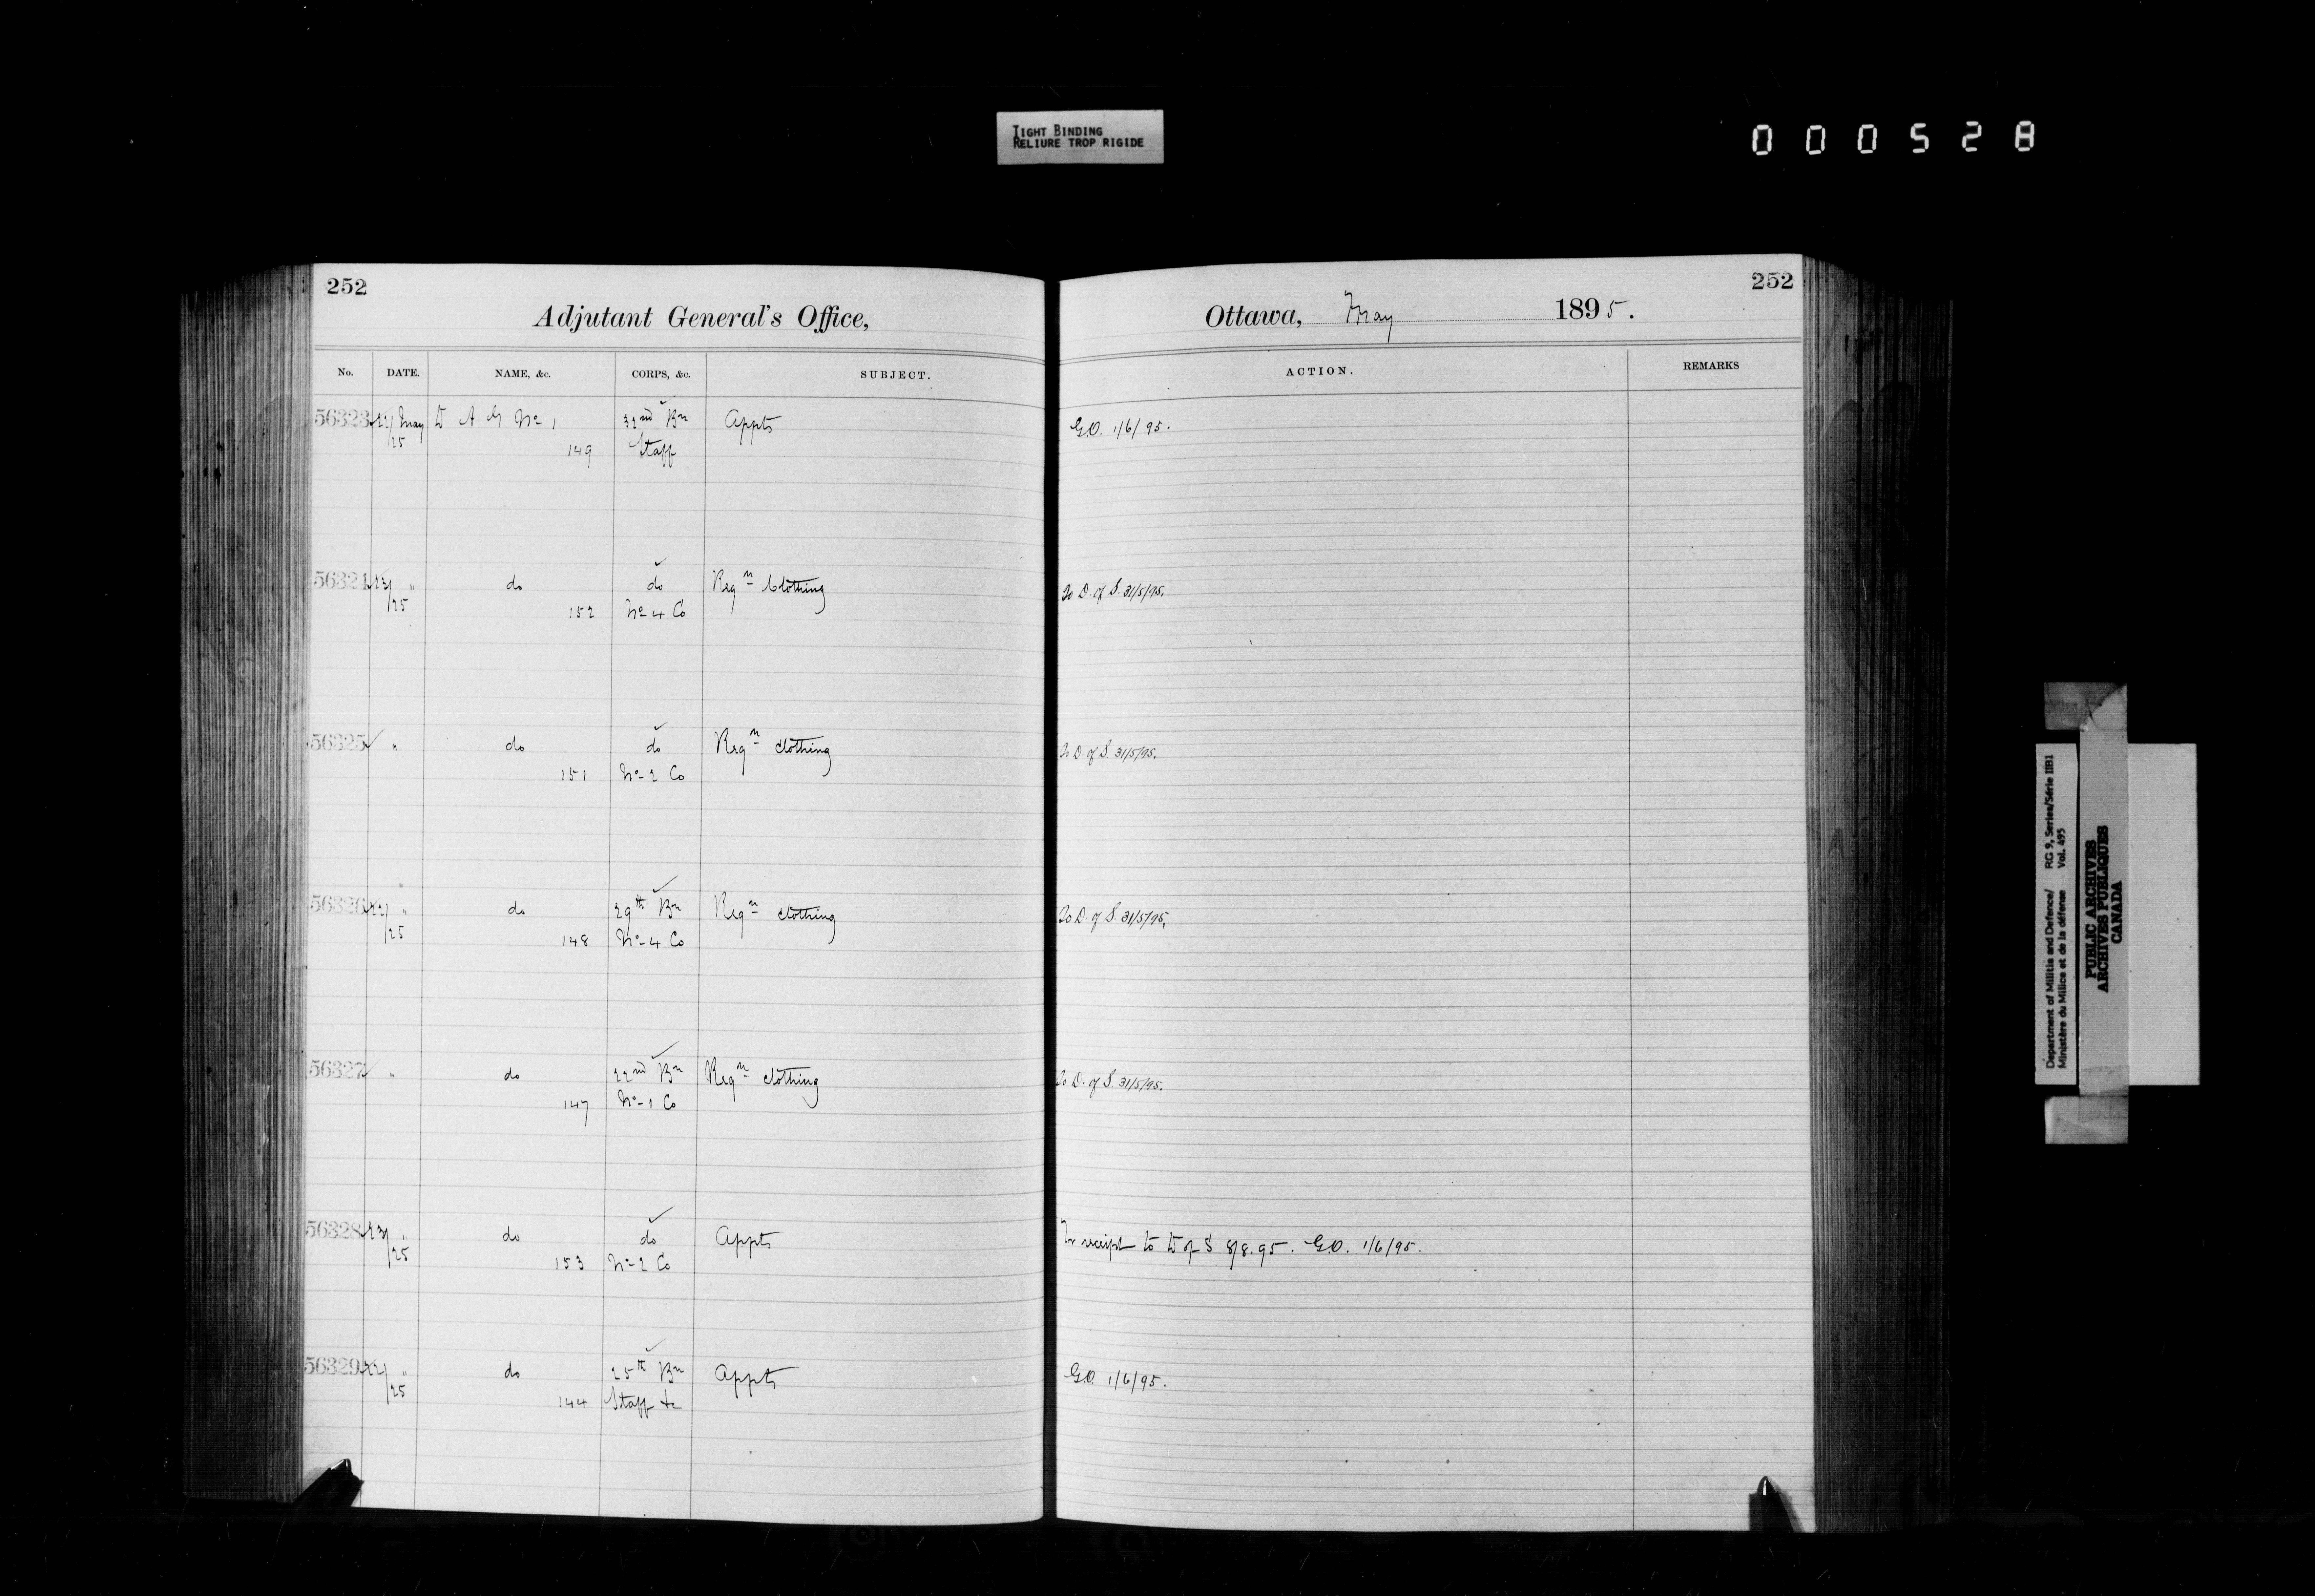 TIGHT BINDING
RELIURE TROP RIGIDE
000528
252
Adjutant General's Office,
No. DATE. NAME, &c. CORPS, &c. SUBJECT.
56323 22/ May D A G No 1 32nd Bn Appts
/25 149 Staff
56324 23/ " do do Reqn Clothing
/25 152 No 4 Co
56325 " do do Reqn Clothing
151 No 2 Co
56326 22/ " do 29th Bn Reqn Clothing
/25 148 No 4 Co
56327 " do 22nd Bn Reqn Clothing
147 No 1 Co
56328 23/ " do do Appts
/25 153 No 2 Co
56329 22/ " do 25th Bn Appts
/25 144 Staff &c
252
Ottawa, May 1895.
ACTION. REMARKS
G.O. 1/6/95.
To D. of S. 31/5/95.
To D. of S. 31/5/95.
To D. of S. 31/5/95.
To D. of S. 31/5/95.
receipt to D of S 8/8.95. G.O. 1/6/95.
G.O. 1/6/95.
Department of Militia and Defence/ RG 9, Series/Série IIB1
Ministère du Milice et de la défense Vol. 495
PUBLIC ARCHIVES
ARCHIVES PUBLIQUES
CANADA